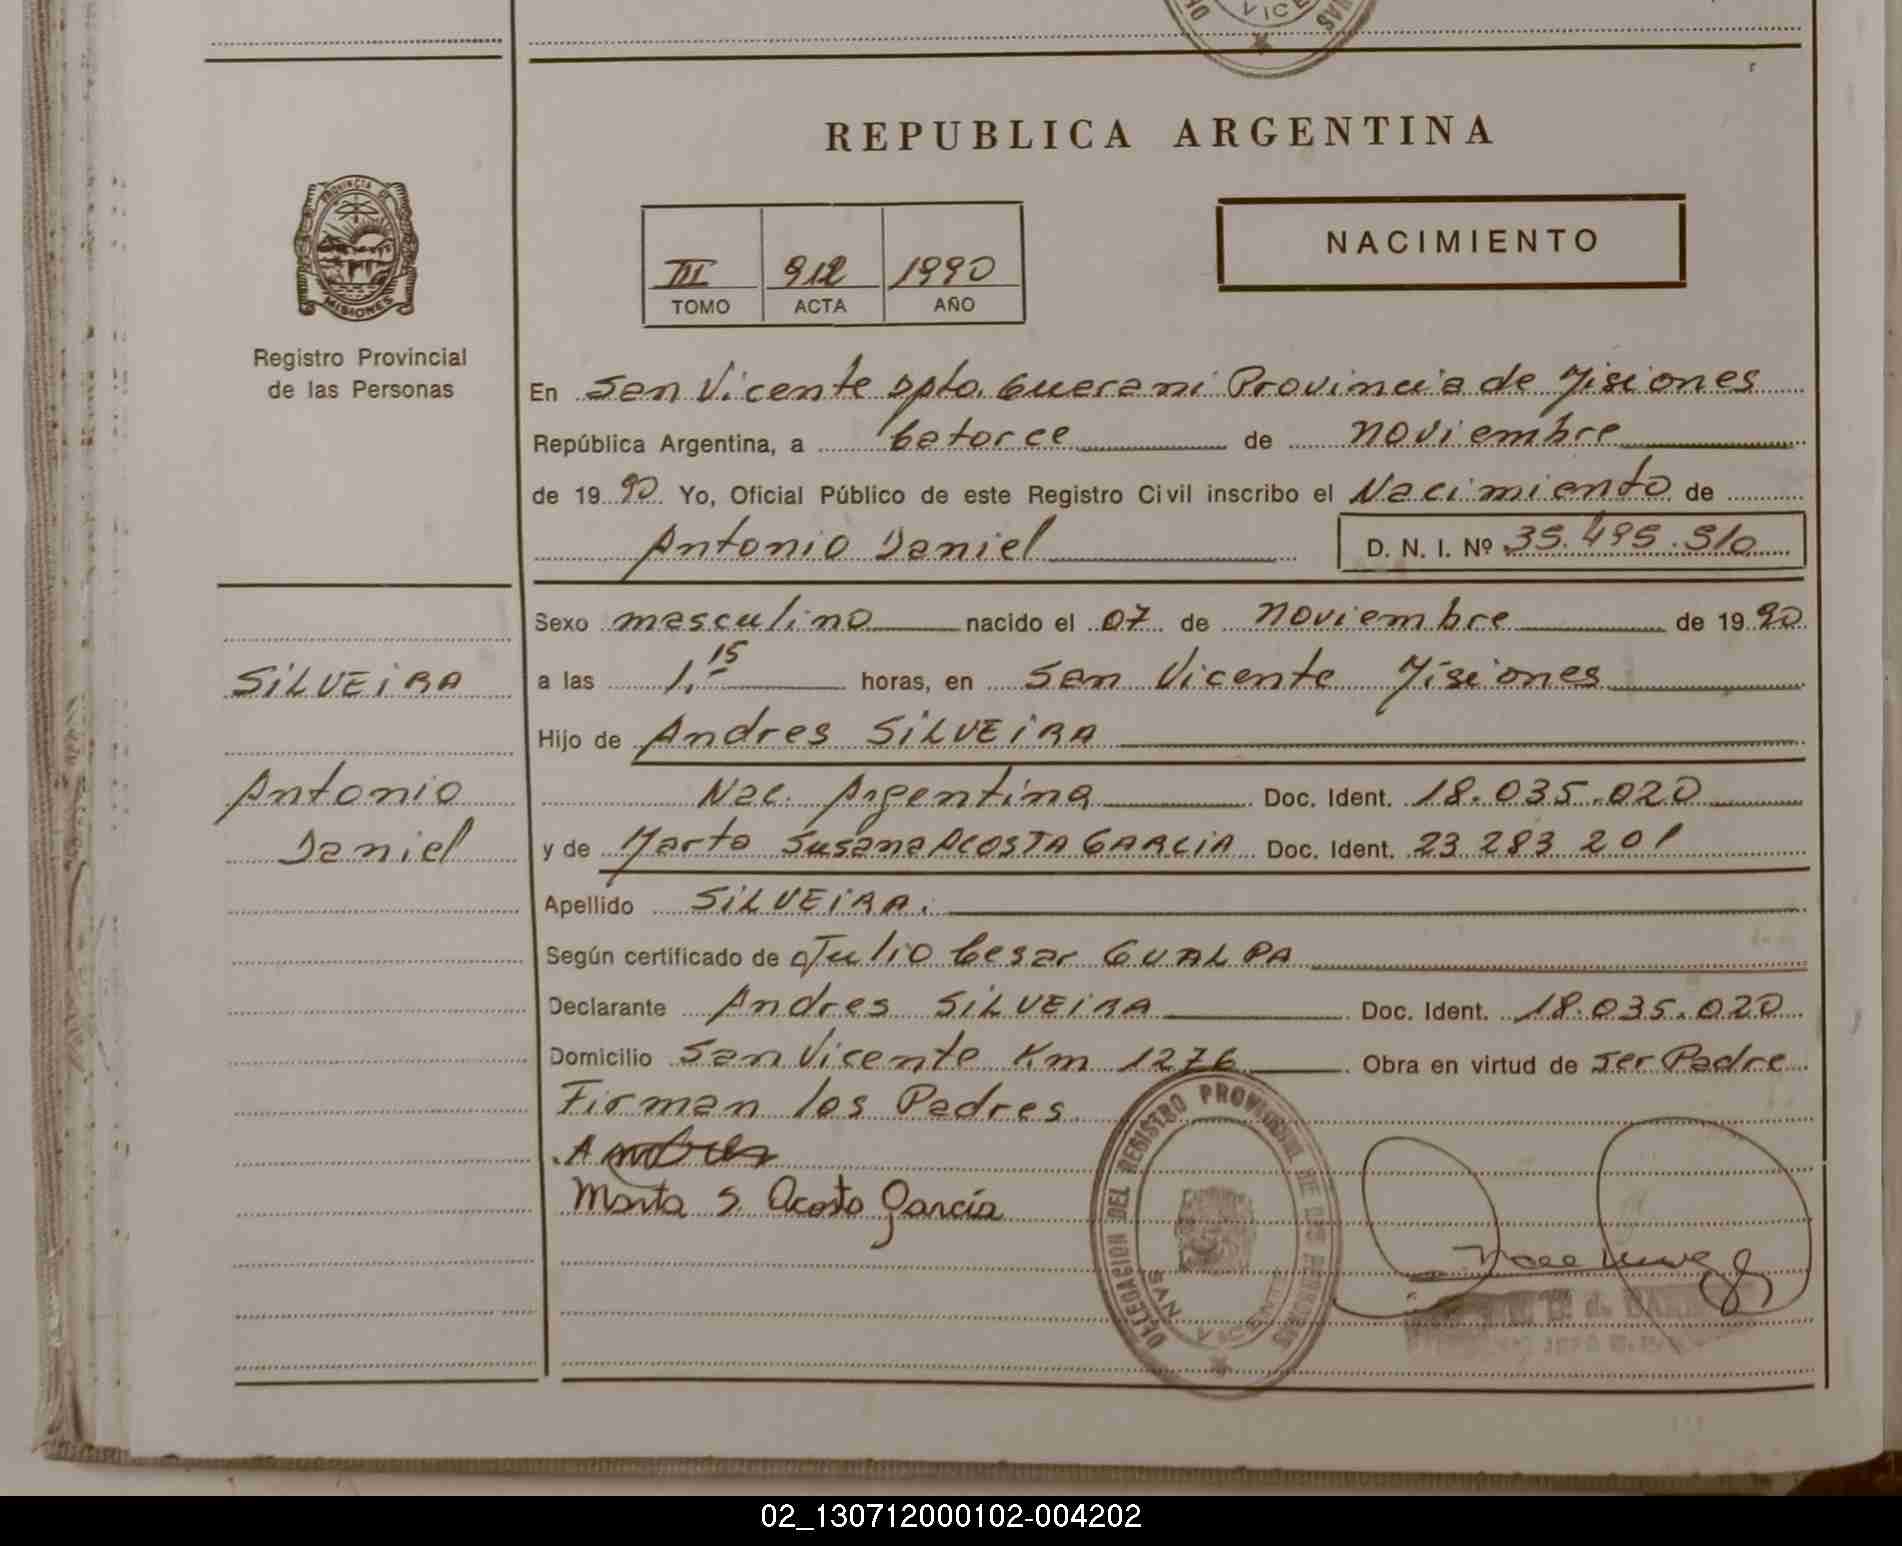 REPUBLICA ARGENTINA
PROVINCIA DE
MISIONES
Registro Provincial
de las Personas
III 912 1990
TOMO ACTA AÑO
NACIMIENTO
En San Vicente Dpto. Guarani Provincia de Misiones
República Argentina, a Catorce de noviembre
de 1990 Yo, Oficial Público de este Registro Civil inscribo el Nacimiento de
Antonio Daniel D. N. I. Nº 35.495.510
Sexo masculino nacido el 07 de noviembre de 1990
SILVEIRA
a las 1,15 horas, en San Vicente Misiones
Hijo de Andres SILVEIRA
Antonio
Nac. Argentina Doc. Ident. 18.035.020
Daniel
y de Marta Susana ACOSTA GARCIA Doc. Ident. 23 283 201
Apellido SILVEIRA.
Según certificado de Julio Cesar GUALPA
Declarante Andres SILVEIRA Doc. Ident. 18.035.020
Domicilio San Vicente Km 1276 Obra en virtud de ser Padre
Firman los Padres
Andres
Marta S Acosta García
DELEGACION DEL REGISTRO PROVINCIAL DE LAS PERSONAS
SAN VICENTE
02_130712000102-004202